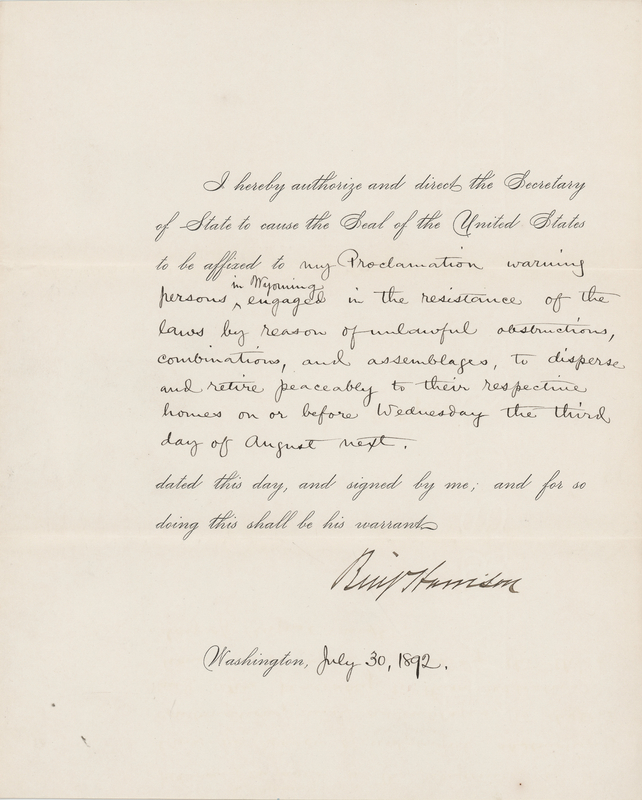 I hereby authorize and direct the Secretary
of State to cause the Seal of the United States
to be affixed to my Proclamation warning
in Wyoming
persons ^ engaged in the resistance of the
laws by reason of unlawful obstructions,
combinations, and assemblages, to disperse
and retire peaceably to their respective
homes on or before Wednesday the third
day of August next.
dated this day, and signed by me; and for so
doing this shall be his warrant
Benj Harrison
Washington, July 30, 1892.